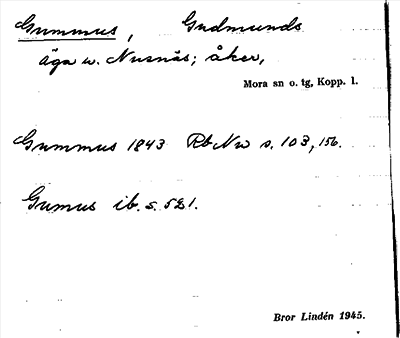 Gummus, Gudmunds
äga w. Nusnäs; åker,
Mora sn o. tg, Kopp. l.
Gummus 1843 Rb Nw s. 103, 156.
Gumus ib. s. 521.
Bror Lindén 1945.